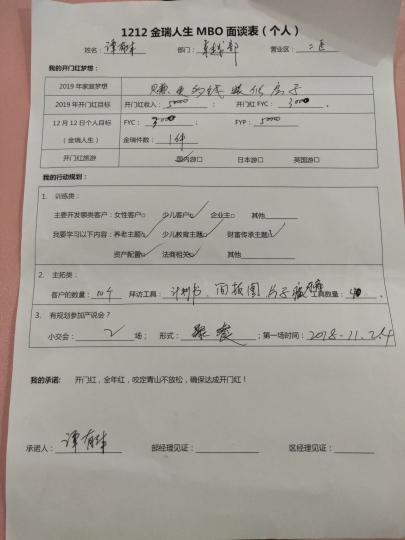 1212 金瑞人生 MBO 面谈表（个人）
姓名： 谭有 部门： 部 营业区： 二区
我的开门红梦想：
2019 年家庭梦想 赚更多的钱 房子
2019 年开门红目标 开门红收入： 5000 ； 开门红 FYC： 3000 。
12 月 12 日个人目标 FYC： 3000 ； FYP： 5000
（金瑞人生） 金瑞件数： 1件
开门红旅游 国内游□ 日本游□ 英国游□
我的行动规划：
1. 训练类：
主要开发哪类客户：女性客户□ 少儿客户□ 企业主□ 其他
我要学习以下内容：养老主题□ 少儿教育主题□ 财富传承主题□
资产配置□ 法商相关□ 其他
2. 主拓类：
客户的数量： 10个 拜访工具： 计划书、 工具数量： 40 。
3. 有规划参加产说会？
小交会： 2 场； 形式： 聚餐 ；第一场时间： 2018.11.24
我的承诺： 开门红，全年红，咬定青山不放松，确保达成开门红！
承诺人： 谭有 部经理见证： 区经理见证：